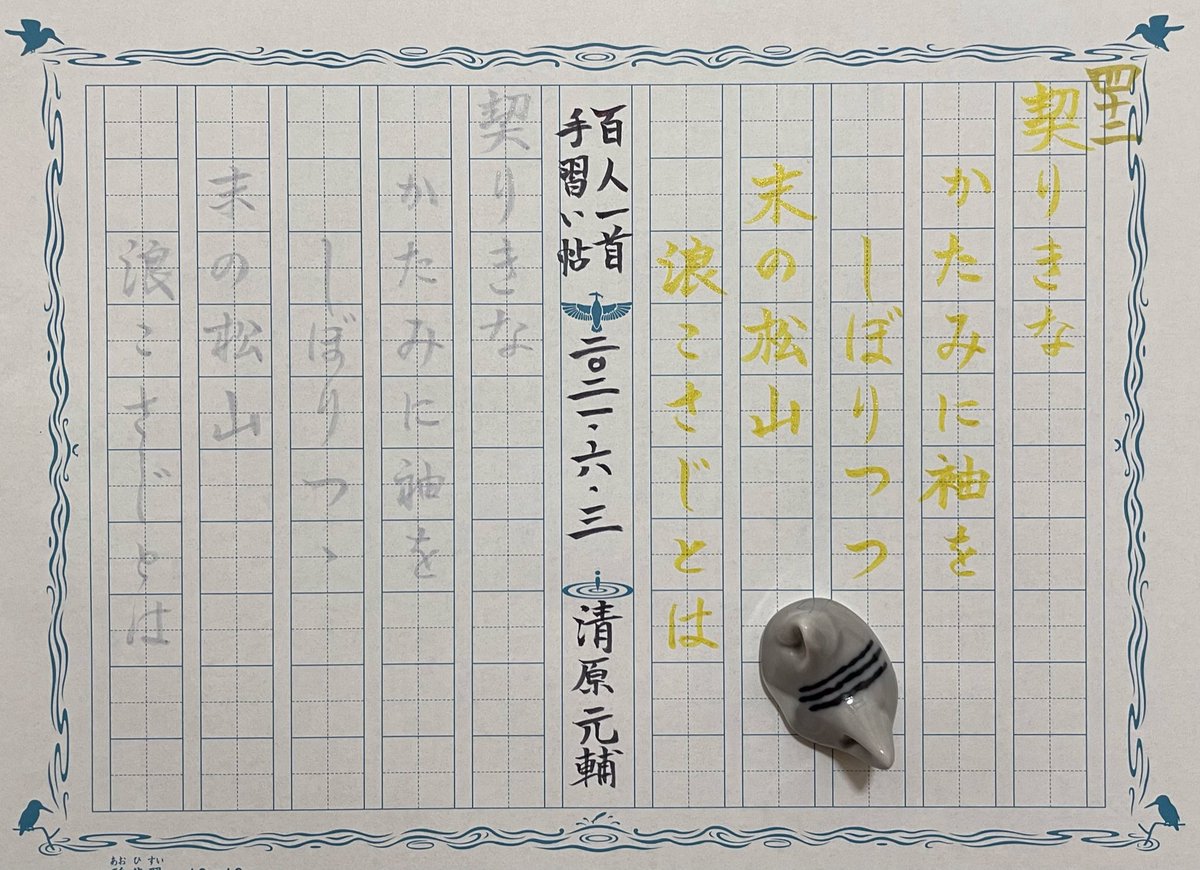 四十二
契りきな
かたみに袖を
しぼりつつ
末の松山
浪こさじとは
百人一首
手習い帖
二〇二一・六・三
清原元輔
契りきな
かたみに袖を
しぼりつゝ
末の松山
浪こさじとは
あおひすい